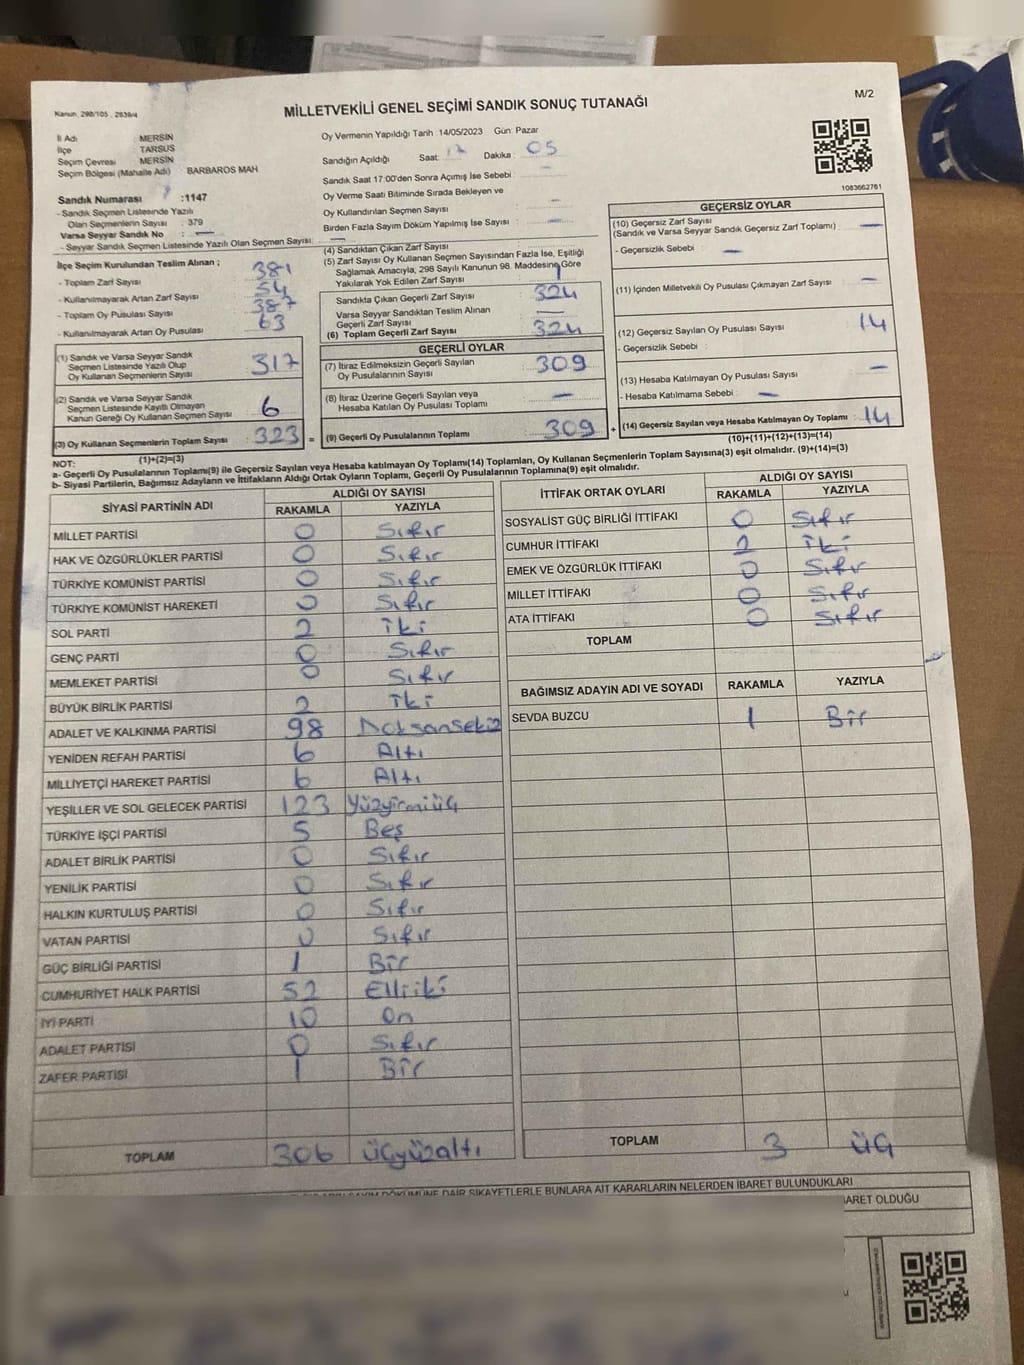 Kanun, 298/105 , 2839/4
MİLLETVEKİLİ GENEL SEÇİMİ SANDIK SONUÇ TUTANAĞI
M/2
İl Adı : MERSİN
İlçe : TARSUS
Seçim Çevresi : MERSİN
Seçim Bölgesi (Mahalle Adı) BARBAROS MAH
Oy Vermenin Yapıldığı Tarih :14/05/2023 Gün: Pazar
Sandığın Açıldığı Saat: 17 Dakika : 05
Sandık Saat 17:00'den Sonra Açımış İse Sebebi : -
Oy Verme Saati Bitiminde Sırada Bekleyen ve
Oy Kullandırılan Seçmen Sayısı : -
Birden Fazla Sayım Döküm Yapılmış İse Sayısı : -
1083662761
Sandık Numarası :1147
- Sandık Seçmen Listesinde Yazılı
Olan Seçmenlerin Sayısı : 379
Varsa Seyyar Sandık No : -
- Seyyar Sandık Seçmen Listesinde Yazılı Olan Seçmen Sayısı: -
İlçe Seçim Kurulundan Teslim Alınan ;
- Toplam Zarf Sayısı : 381
- Kullanılmayarak Artan Zarf Sayısı : 54
- Toplam Oy Pusulası Sayısı : 387
- Kullanılmayarak Artan Oy Pusulası : 63
(1) Sandık ve Varsa Seyyar Sandık
Seçmen Listesinde Yazılı Olup
Oy Kullanan Seçmenlerin Sayısı : 317
(2) Sandık ve Varsa Seyyar Sandık
Seçmen Listesinde Kayıtlı Olmayan
Kanun Gereği Oy Kullanan Seçmen Sayısı : 6
(3) Oy Kullanan Seçmenlerin Toplam Sayısı : 323 =
(1)+(2)=(3)
(4) Sandıktan Çıkan Zarf Sayısı :
(5) Zarf Sayısı Oy Kullanan Seçmen Sayısından Fazla İse, Eşitliği
Sağlamak Amacıyla, 298 Sayılı Kanunun 98. Maddesine Göre
Yakılarak Yok Edilen Zarf Sayısı : 1
Sandıkta Çıkan Geçerli Zarf Sayısı : 324
Varsa Seyyar Sandıktan Teslim Alınan
Geçerli Zarf Sayısı : -
(6) Toplam Geçerli Zarf Sayısı : 324
GEÇERLİ OYLAR
(7) İtiraz Edilmeksizin Geçerli Sayılan
Oy Pusulalarının Sayısı : 309
(8) İtiraz Üzerine Geçerli Sayılan veya
Hesaba Katılan Oy Pusulası Toplamı : -
(9) Geçerli Oy Pusulalarının Toplamı : 309 +
GEÇERSİZ OYLAR
(10) Geçersiz Zarf Sayısı
(Sandık ve Varsa Seyyar Sandık Geçersiz Zarf Toplamı) : -
- Geçersizlik Sebebi : -
(11) İçinden Milletvekili Oy Pusulası Çıkmayan Zarf Sayısı : -
(12) Geçersiz Sayılan Oy Pusulası Sayısı : 14
- Geçersizlik Sebebi :
(13) Hesaba Katılmayan Oy Pusulası Sayısı : -
- Hesaba Katılmama Sebebi : -
(14) Geçersiz Sayılan veya Hesaba Katılmayan Oy Toplamı : 14
(10)+(11)+(12)+(13)=(14)
NOT:
a- Geçerli Oy Pusulalarının Toplamı(9) ile Geçersiz Sayılan veya Hesaba katılmayan Oy Toplamı(14) Toplamları, Oy Kullanan Seçmenlerin Toplam Sayısına(3) eşit olmalıdır. (9)+(14)=(3)
b- Siyasi Partilerin, Bağımsız Adayların ve İttifakların Aldığı Ortak Oyların Toplamı, Geçerli Oy Pusulalarının Toplamına(9) eşit olmalıdır.
SİYASİ PARTİNİN ADI ALDIĞI OY SAYISI
RAKAMLA YAZIYLA
MİLLET PARTİSİ 0 Sıfır
HAK VE ÖZGÜRLÜKLER PARTİSİ 0 Sıfır
TÜRKİYE KOMÜNİST PARTİSİ 0 Sıfır
TÜRKİYE KOMÜNİST HAREKETİ 0 Sıfır
SOL PARTİ 2 iki
GENÇ PARTİ 0 Sıfır
MEMLEKET PARTİSİ 0 Sıfır
BÜYÜK BİRLİK PARTİSİ 2 iki
ADALET VE KALKINMA PARTİSİ 98 Doksansekiz
YENİDEN REFAH PARTİSİ 6 Altı
MİLLİYETÇİ HAREKET PARTİSİ 6 Altı
YEŞİLLER VE SOL GELECEK PARTİSİ 123 Yüzyirmiüç
TÜRKİYE İŞÇİ PARTİSİ 5 Beş
ADALET BİRLİK PARTİSİ 0 Sıfır
YENİLİK PARTİSİ 0 Sıfır
HALKIN KURTULUŞ PARTİSİ 0 Sıfır
VATAN PARTİSİ 0 Sıfır
GÜÇ BİRLİĞİ PARTİSİ 1 Bir
CUMHURİYET HALK PARTİSİ 52 Elliiki
İYİ PARTİ 10 On
ADALET PARTİSİ 0 Sıfır
ZAFER PARTİSİ 1 Bir
TOPLAM 306 üçyüzaltı
İTTİFAK ORTAK OYLARI ALDIĞI OY SAYISI
RAKAMLA YAZIYLA
SOSYALİST GÜÇ BİRLİĞİ İTTİFAKI 0 Sıfır
CUMHUR İTTİFAKI 2 iki
EMEK VE ÖZGÜRLÜK İTTİFAKI 0 Sıfır
MİLLET İTTİFAKI 0 Sıfır
ATA İTTİFAKI 0 Sıfır
TOPLAM
BAĞIMSIZ ADAYIN ADI VE SOYADI RAKAMLA YAZIYLA
SEVDA BUZCU 1 Bir
TOPLAM 3 üç
DÖKÜMÜNE DAİR ŞİKAYETLERLE BUNLARA AİT KARARLARIN NELERDEN İBARET BULUNDUKLARI
İBARET OLDUĞU